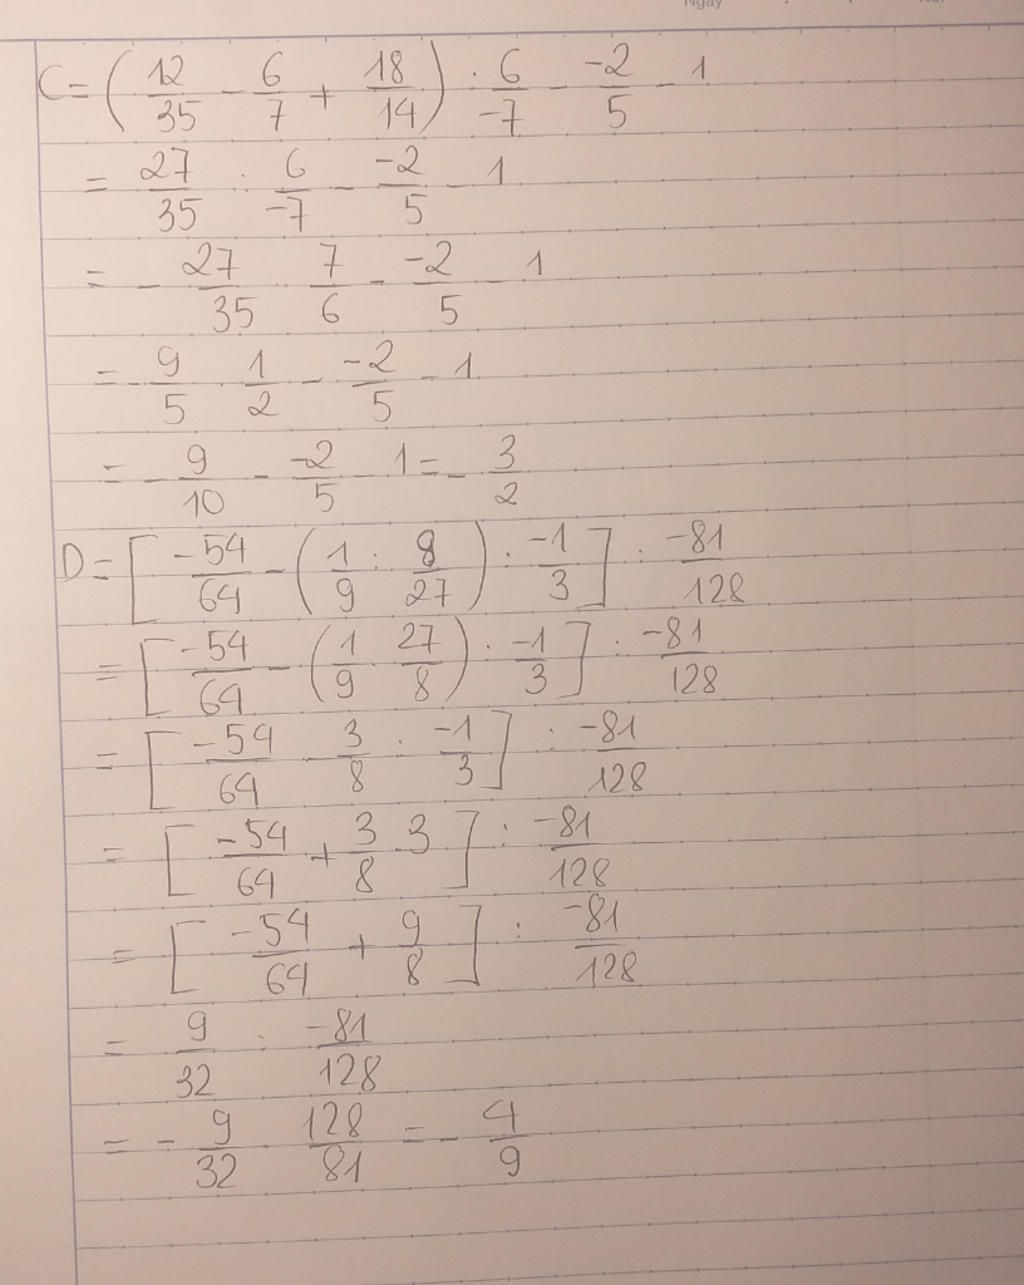 Ngày
C = (12/35 - 6/7 + 18/14) : 6/-7 - -2/5 - 1
= 27/35 : 6/-7 - -2/5 - 1
= - 27/35 . 7/6 - -2/5 - 1
= - 9/5 . 1/2 - -2/5 - 1
= - 9/10 - -2/5 - 1 = - 3/2
D = [-54/64 - (1/9 : 8/27) : -1/3] : -81/128
= [-54/64 - (1/9 . 27/8) : -1/3] : -81/128
= [-54/64 - 3/8 : -1/3] : -81/128
= [-54/64 + 3/8 . 3] : -81/128
= [-54/64 + 9/8] : -81/128
= 9/32 : -81/128
= - 9/32 . 128/81 = - 4/9